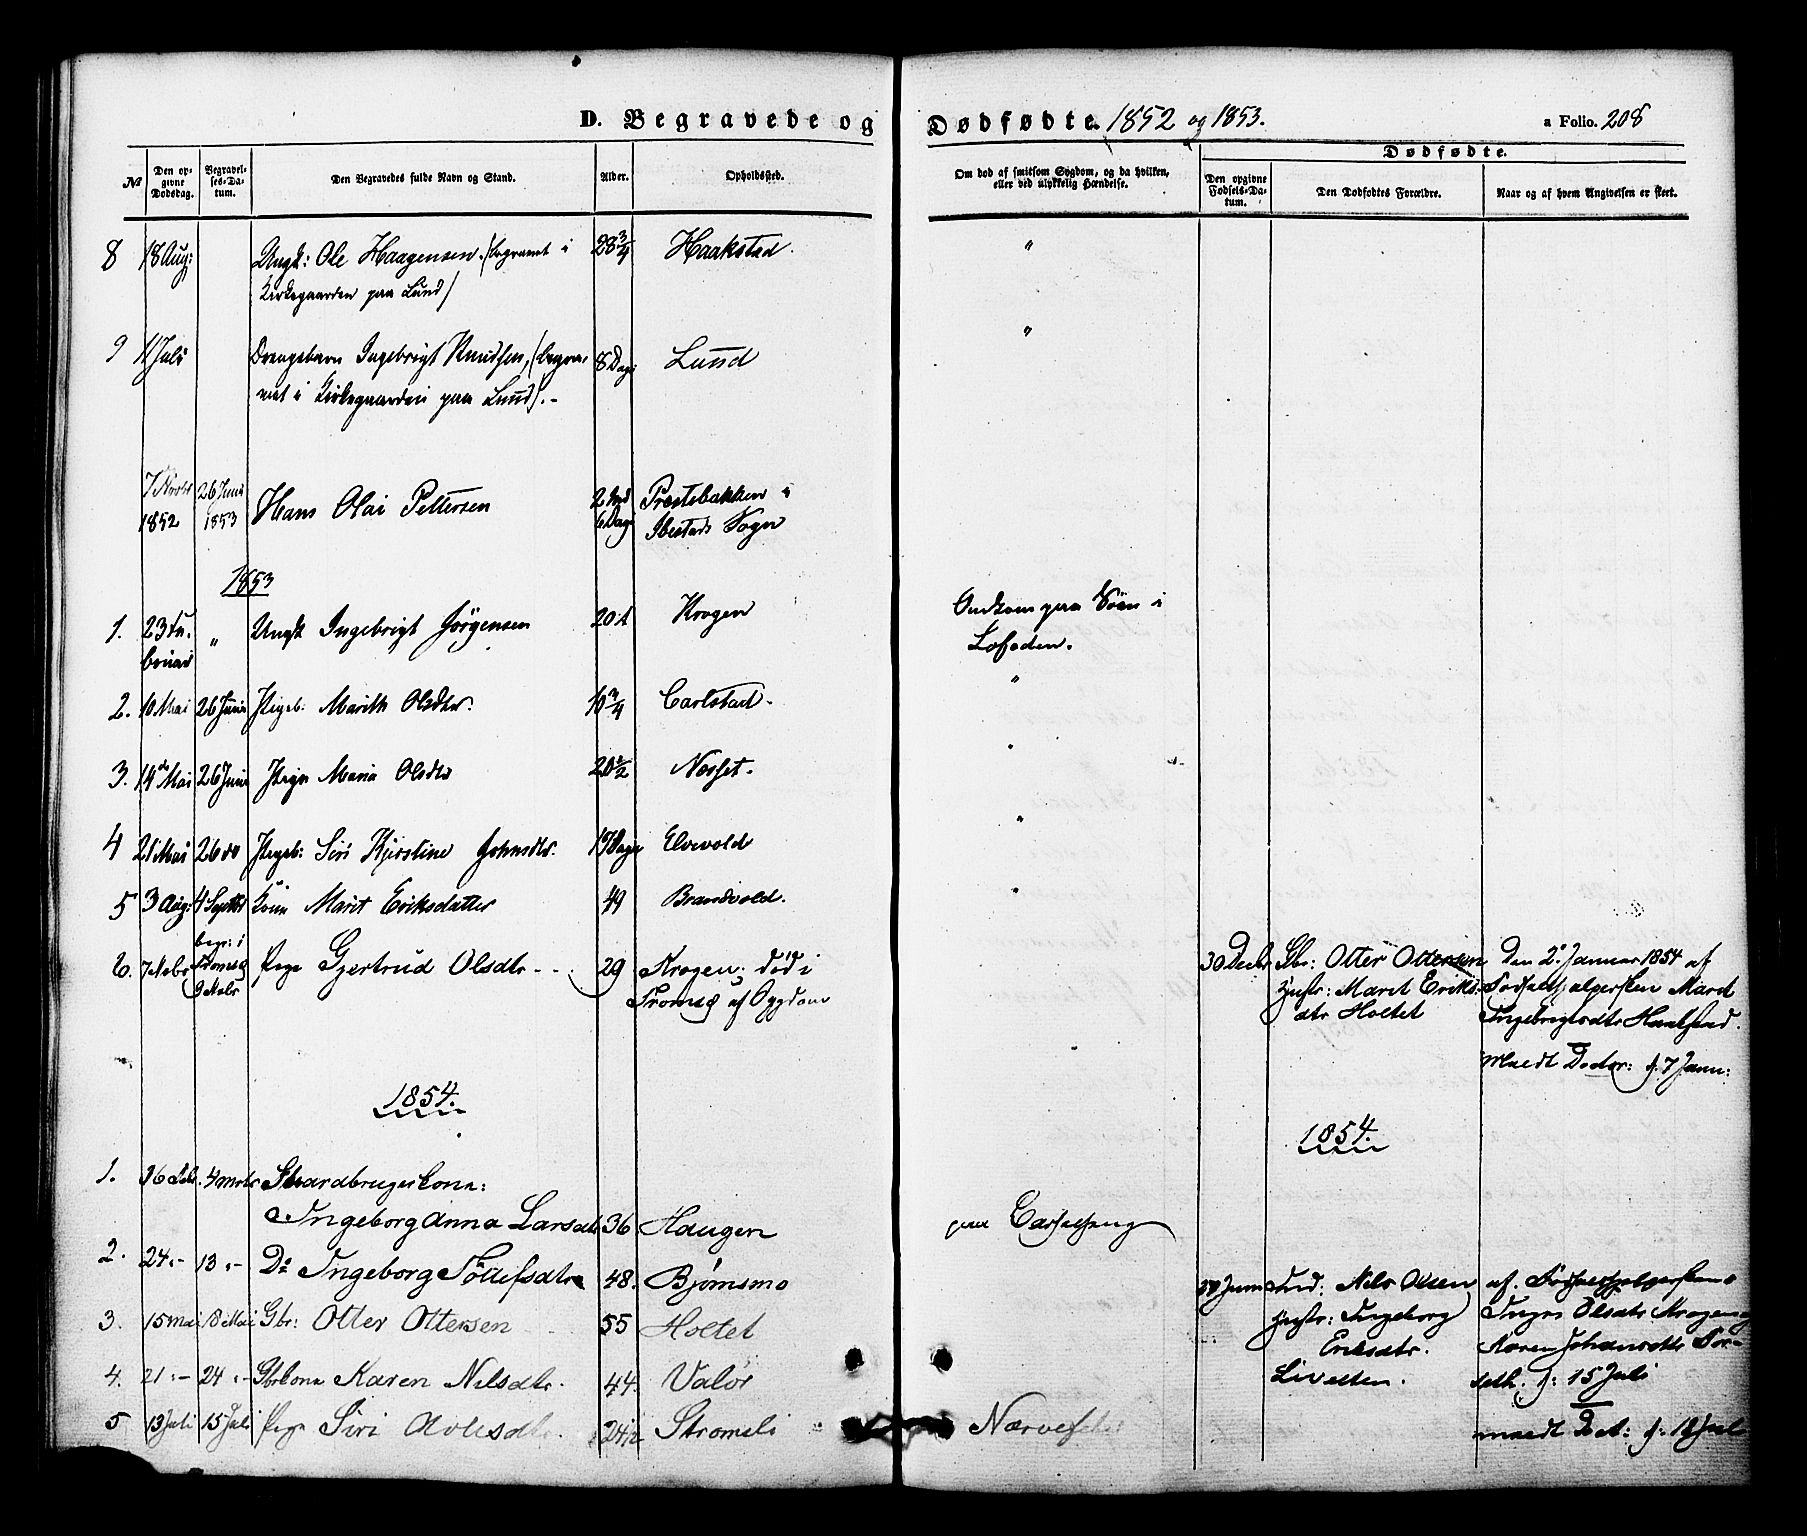 D. Begravede og Dødfødte. 1852 og 1853.
a Folio. 208
№
Den opgivne Dødsdag.
Begravelses-Datum.
Den Begravedes fulde Navn og Stand.
Alder.
Opholdssted.
Om død af smitsom Sygdom, og da hvilken, eller ved ulykkelig Hændelse.
Dødfødte.
Den opgivne Fødsels-Datum.
Den Dødfødtes Forældre.
Naar og af hvem Angivelsen er skeet.
8 18 Aug: Ungk: Ole Haagensen. (begravet i 28 3/4 Haakstad. "
Kirkegaarden paa Lund)
9 11 Juli Drengebarn Ingebrigt Knudsen, (begra- 8 Dage Lund "
vet i Kirkegaarden paa Lund). -
7 Novbr 1852 26 Juni 1853 Hans Olai Pettersen 6 Dage Præstebakken i
Ibestads Sogn
1853
1. 23 Februar " Ungk Ingebrigt Jørgensen 20 Krogen Omkom paa Søen i
Lofoden.
2. 10 Mai 26 Juni Pigeb: Marith Olsdtr. 10 3/4 Carlstad. "
3. 14de Mai 26 Juni Pige Maria Olsdtr 20 1/2 Nosset. "
4 21 Mai 26 do Pigeb: Siri Kjerstine Johnsdtr. Dage Elvevold "
5 3 Aug: 4 Septbr Kone Marit Eriksdatter 49 Brandvold. "
6. 7 Nobr begr: i Tromsø 9 Nobr Pige Gjertrud Olsdtr - . . 29 Krogen; død i
Tromsø af Sygdom
30 Decbr Gbr: Otter Ottersen
Hustr: Marit Eriks-
dtr Holtet
Den 2. Januar 1854 af
Fødselshjælpersken Marit
Ingebrigtsdtr
1854.
1854.
1. 26 Feb. 4 Mrts Gaardbrugerkone:
Ingeborganna Larsdtr 36 Haugen paa Barselseng
2. 24 .- 13 .- Do Ingeborg Tollefsdtr 48. Bjørnsmo
3. 15 Mai 18 Mai Gbr: Otter Ottersen 55 Holtet
4. 21 .- 24 .- Gbrkone Karen Nilsdtr. 44. Valør
5 13 Juli 15 Juli Pige Siri 24 1/2 Strømsli
30 Juni Ind: Nils Olsen
Hustr: Ingeborg
Eriksdtr.
Livelten.
af Fødselshjelperskene
Inger Olsdtr Krogen og
Karen Johansdtr
15 Juli